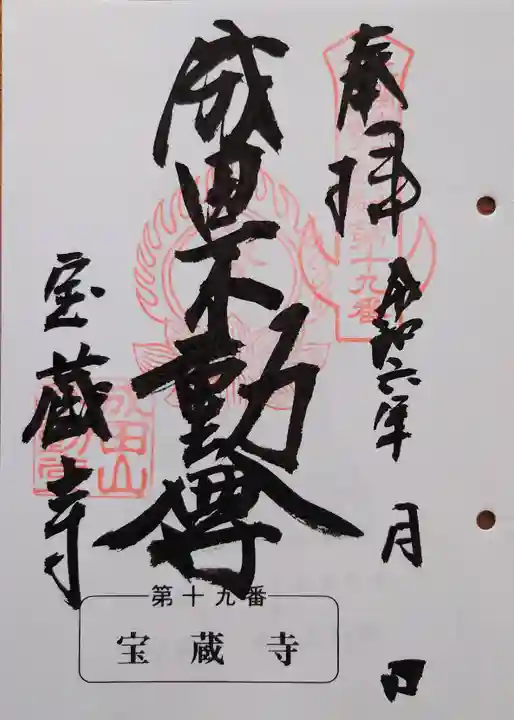 奉拝
令和六年 月 日
成田不動尊
宝蔵寺
成田山
第十九番
第十九番
宝蔵寺